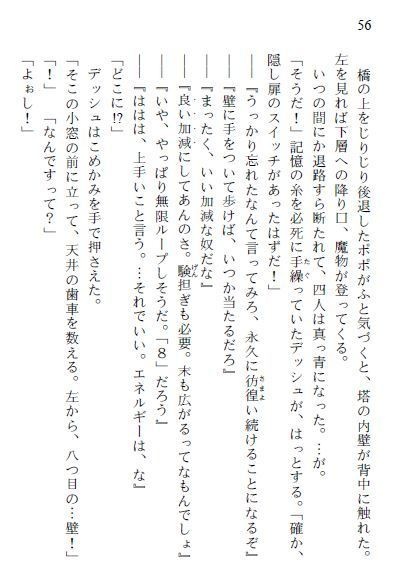 56
橋の上をじりじり後退したポポがふと気づくと、塔の内壁が背中に触れた。
左を見れば下層への降り口、魔物が登ってくる。
いつの間にか退路すら断たれて、四人は真っ青になった。…が。
「そうだ！」記憶の糸を必死に手繰っていたデッシュが、はっとする。「確か、
隠し扉のスイッチがあったはずだ！」
――『うっかり忘れたなんて言ってみろ、永久に彷徨い続けることになるぞ』
――『壁に手をついて歩けば、いつか当たるだろ』
――『まったく、いい加減な奴だな』
――『良い加減にしてあんのさ。験担ぎも必要。末も広がるってなもんでしょ』
――『いや、やっぱり無限ループしそうだ。「８」だろう』
――『ははは、上手いこと言う。…それでいい。エネルギーは、な』
「どこに!?」
デッシュはこめかみを手で押さえた。
「そこの小窓の前に立って、天井の歯車を数える。左から、八つ目の…壁！」
「！」　「なんですって？」
「よぉし！」